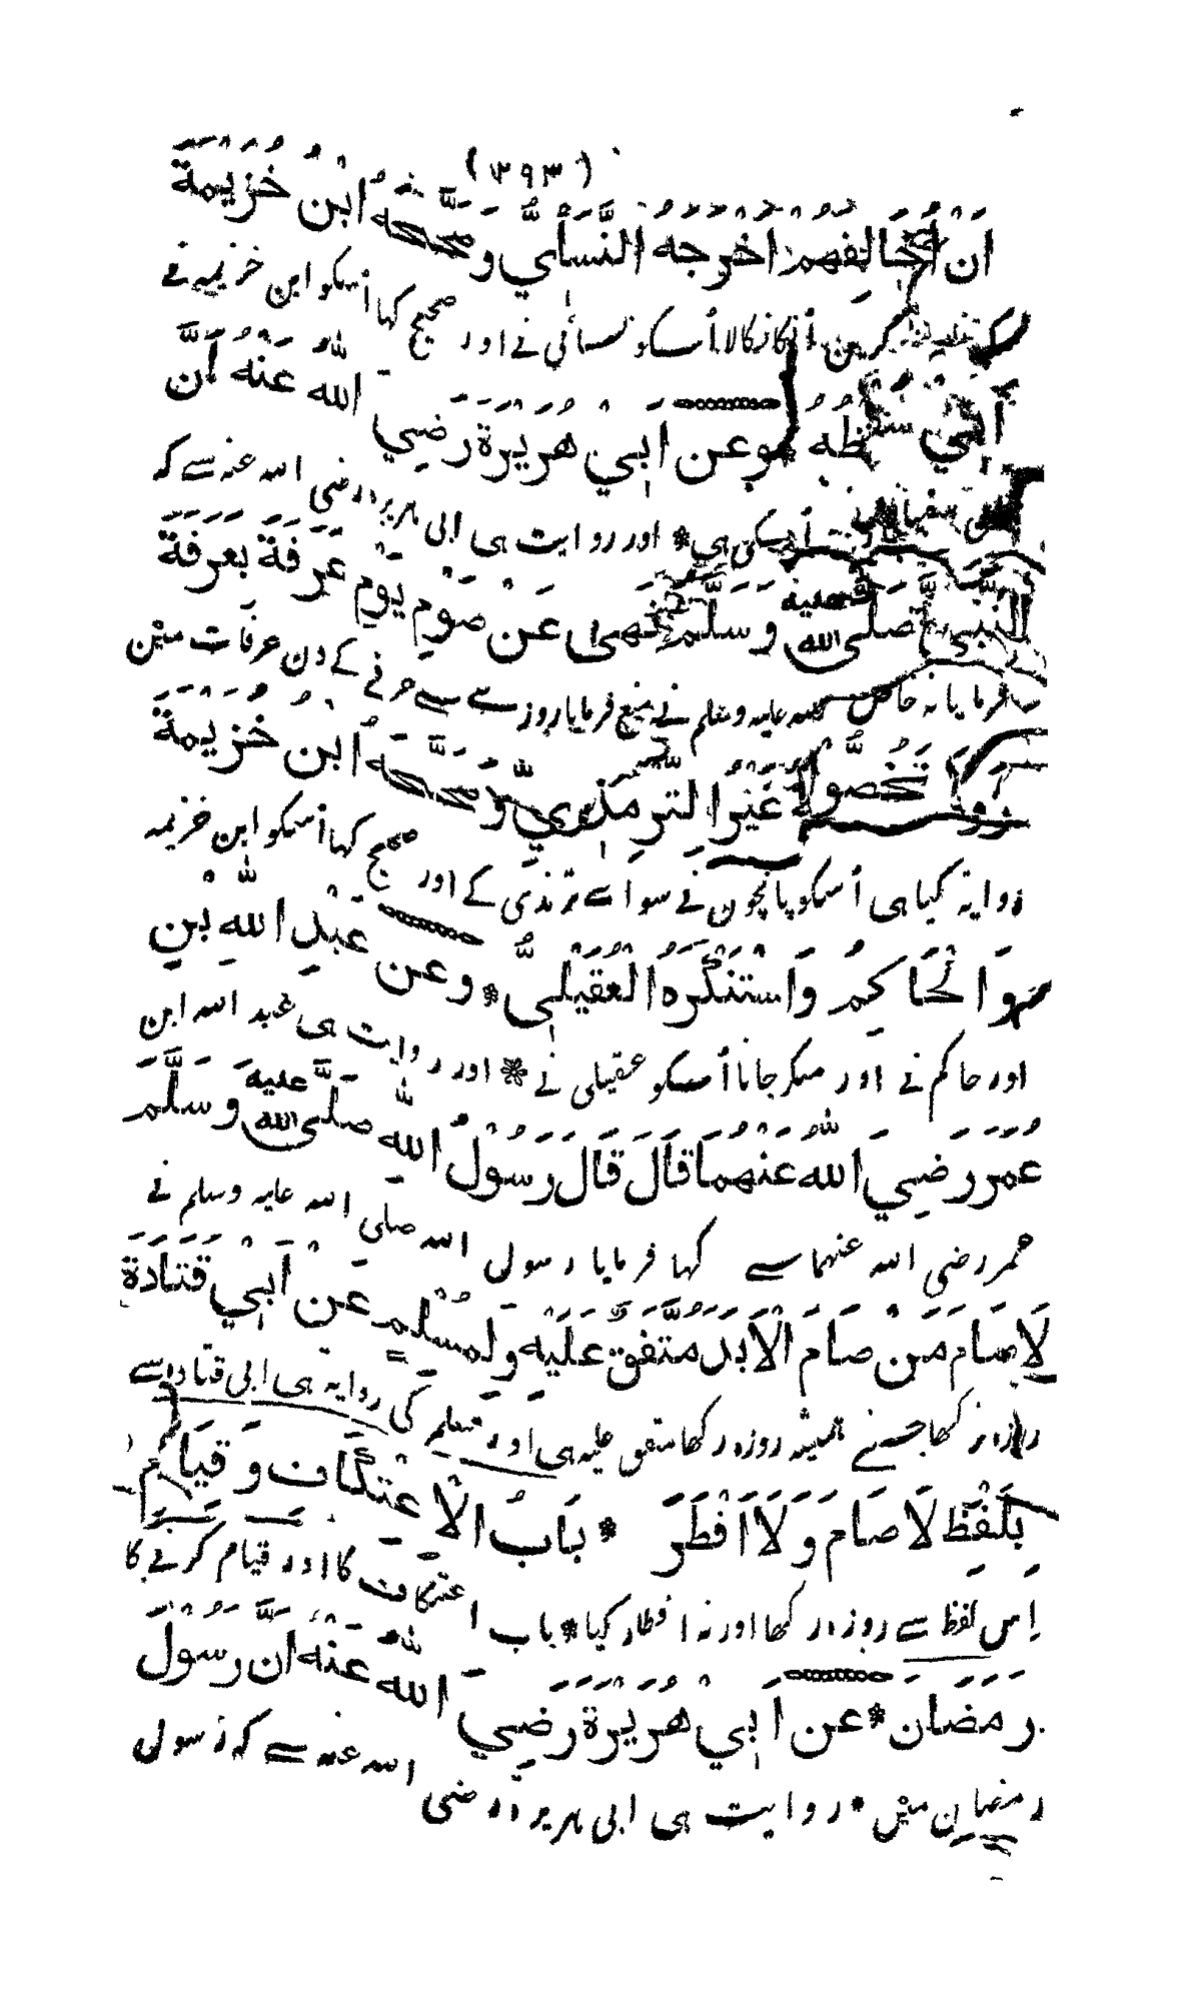 (٣٩٣)
اَنْ اُخَالِفَهُمْ اَخْرَجَهُ النَّسَائِيُّ وَصَحَّحَهُ ابْنُ خُزَيْمَةَ
کرین اُنکا نکالا اُسکو نسائی نے اور صحیح کہا اُسکو ابن خزیمہ نے
لَفْظُهُ وَعَنْ اَبِيْ هُرَيْرَةَ رَضِيَ اللّٰهُ عَنْهُ اَنَّ
اُسکی ہی * اور روایت ہی ابی ہریرہ رضی اللہ عنہ سے کہ
النَّبِيَّ صَلَّى اللّٰهُ عَلَيْهِ وَسَلَّمَ نَهٰى عَنْ صَوْمِ يَوْمِ عَرَفَةَ بِعَرَفَةَ
علیہ وسلم نے منع فرمایا روزے سے عرفے کے دن عرفات مین
غَيْرُ التِّرْمِذِيِّ وَصَحَّحَهُ ابْنُ خُزَيْمَةَ
روایة کیا ہی اُسکو پانچون نے سواے ترمذی کے اور صحیح کہا اُسکو ابن خزیمہ
وَالْحَاكِمُ وَاسْتَنْكَرَهُ الْعُقَيْلِيُّ * وَعَنْ عَبْدِ اللّٰهِ بْنِ
اور حاکم نے اور منکر جانا اُسکو عقیلی نے * اور روایت ہی عبد اللہ ابن
عُمَرَ رَضِيَ اللّٰهُ عَنْهُمَا قَالَ قَالَ رَسُوْلُ اللّٰهِ صَلَّى اللّٰهُ عَلَيْهِ وَسَلَّمَ
عمر رضی اللہ عنہما سے کہا فرمایا رسول اللہ صلی اللہ علیہ وسلم نے
لَا صَامَ مَنْ صَامَ الْاَبَدَ مُتَّفَقٌ عَلَيْهِ وَلِمُسْلِمٍ عَنْ اَبِيْ قَتَادَةَ
رکھا جسنے ہمیشہ روزہ رکھا متفق علیہ ہی اور مسلم کی روایہ ہی ابی قتادہ سے
بِلَفْظِ لَا صَامَ وَلَا اَفْطَرَ * بَابُ الْاِعْتِكَافِ وَقِيَامِ
اِس لفظ سے روزہ رکھا اور نہ افطار کیا * باب اعتکاف کا اور قیام کرنے کا
رَمَضَانَ * عَنْ اَبِيْ هُرَيْرَةَ رَضِيَ اللّٰهُ عَنْهُ اَنَّ رَسُوْلَ
رمضان مین * روایت ہی ابی ہریرہ رضی اللہ عنہ سے کہ رسول